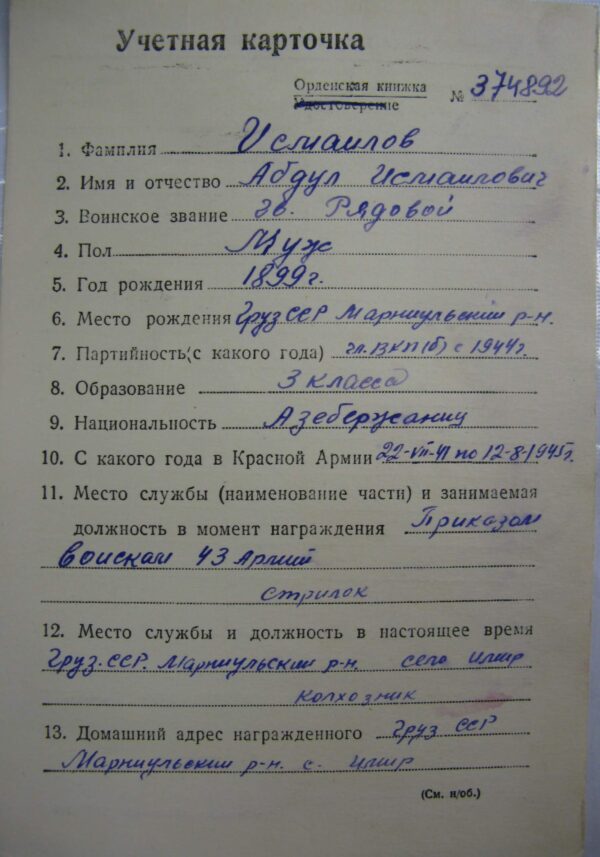 Учетная карточка
Орденская книжка № 374892
Удостоверение
1. Фамилия Исмаилов
2. Имя и отчество Абдул Исмаилович
3. Воинское звание гв. Рядовой
4. Пол Муж
5. Год рождения 1899г.
6. Место рождения Груз ССР Марниульский р-н.
7. Партийность (с какого года) чл. ВКП(б) с 1944г.
8. Образование 3 класса
9. Национальность Азебержаниц
10. С какого года в Красной Армии 22-VII-41 по 12-8-1945г.
11. Место службы (наименование части) и занимаемая
должность в момент награждения Приказом
Воискам 43 Армий
стрилок
12. Место службы и должность в настоящее время
Груз. ССР. Марниульский р-н. село Илмир
колхозник
13. Домашний адрес награжденного Груз ССР
Марниульский р-н. с. Илмир
(См. н/об.)